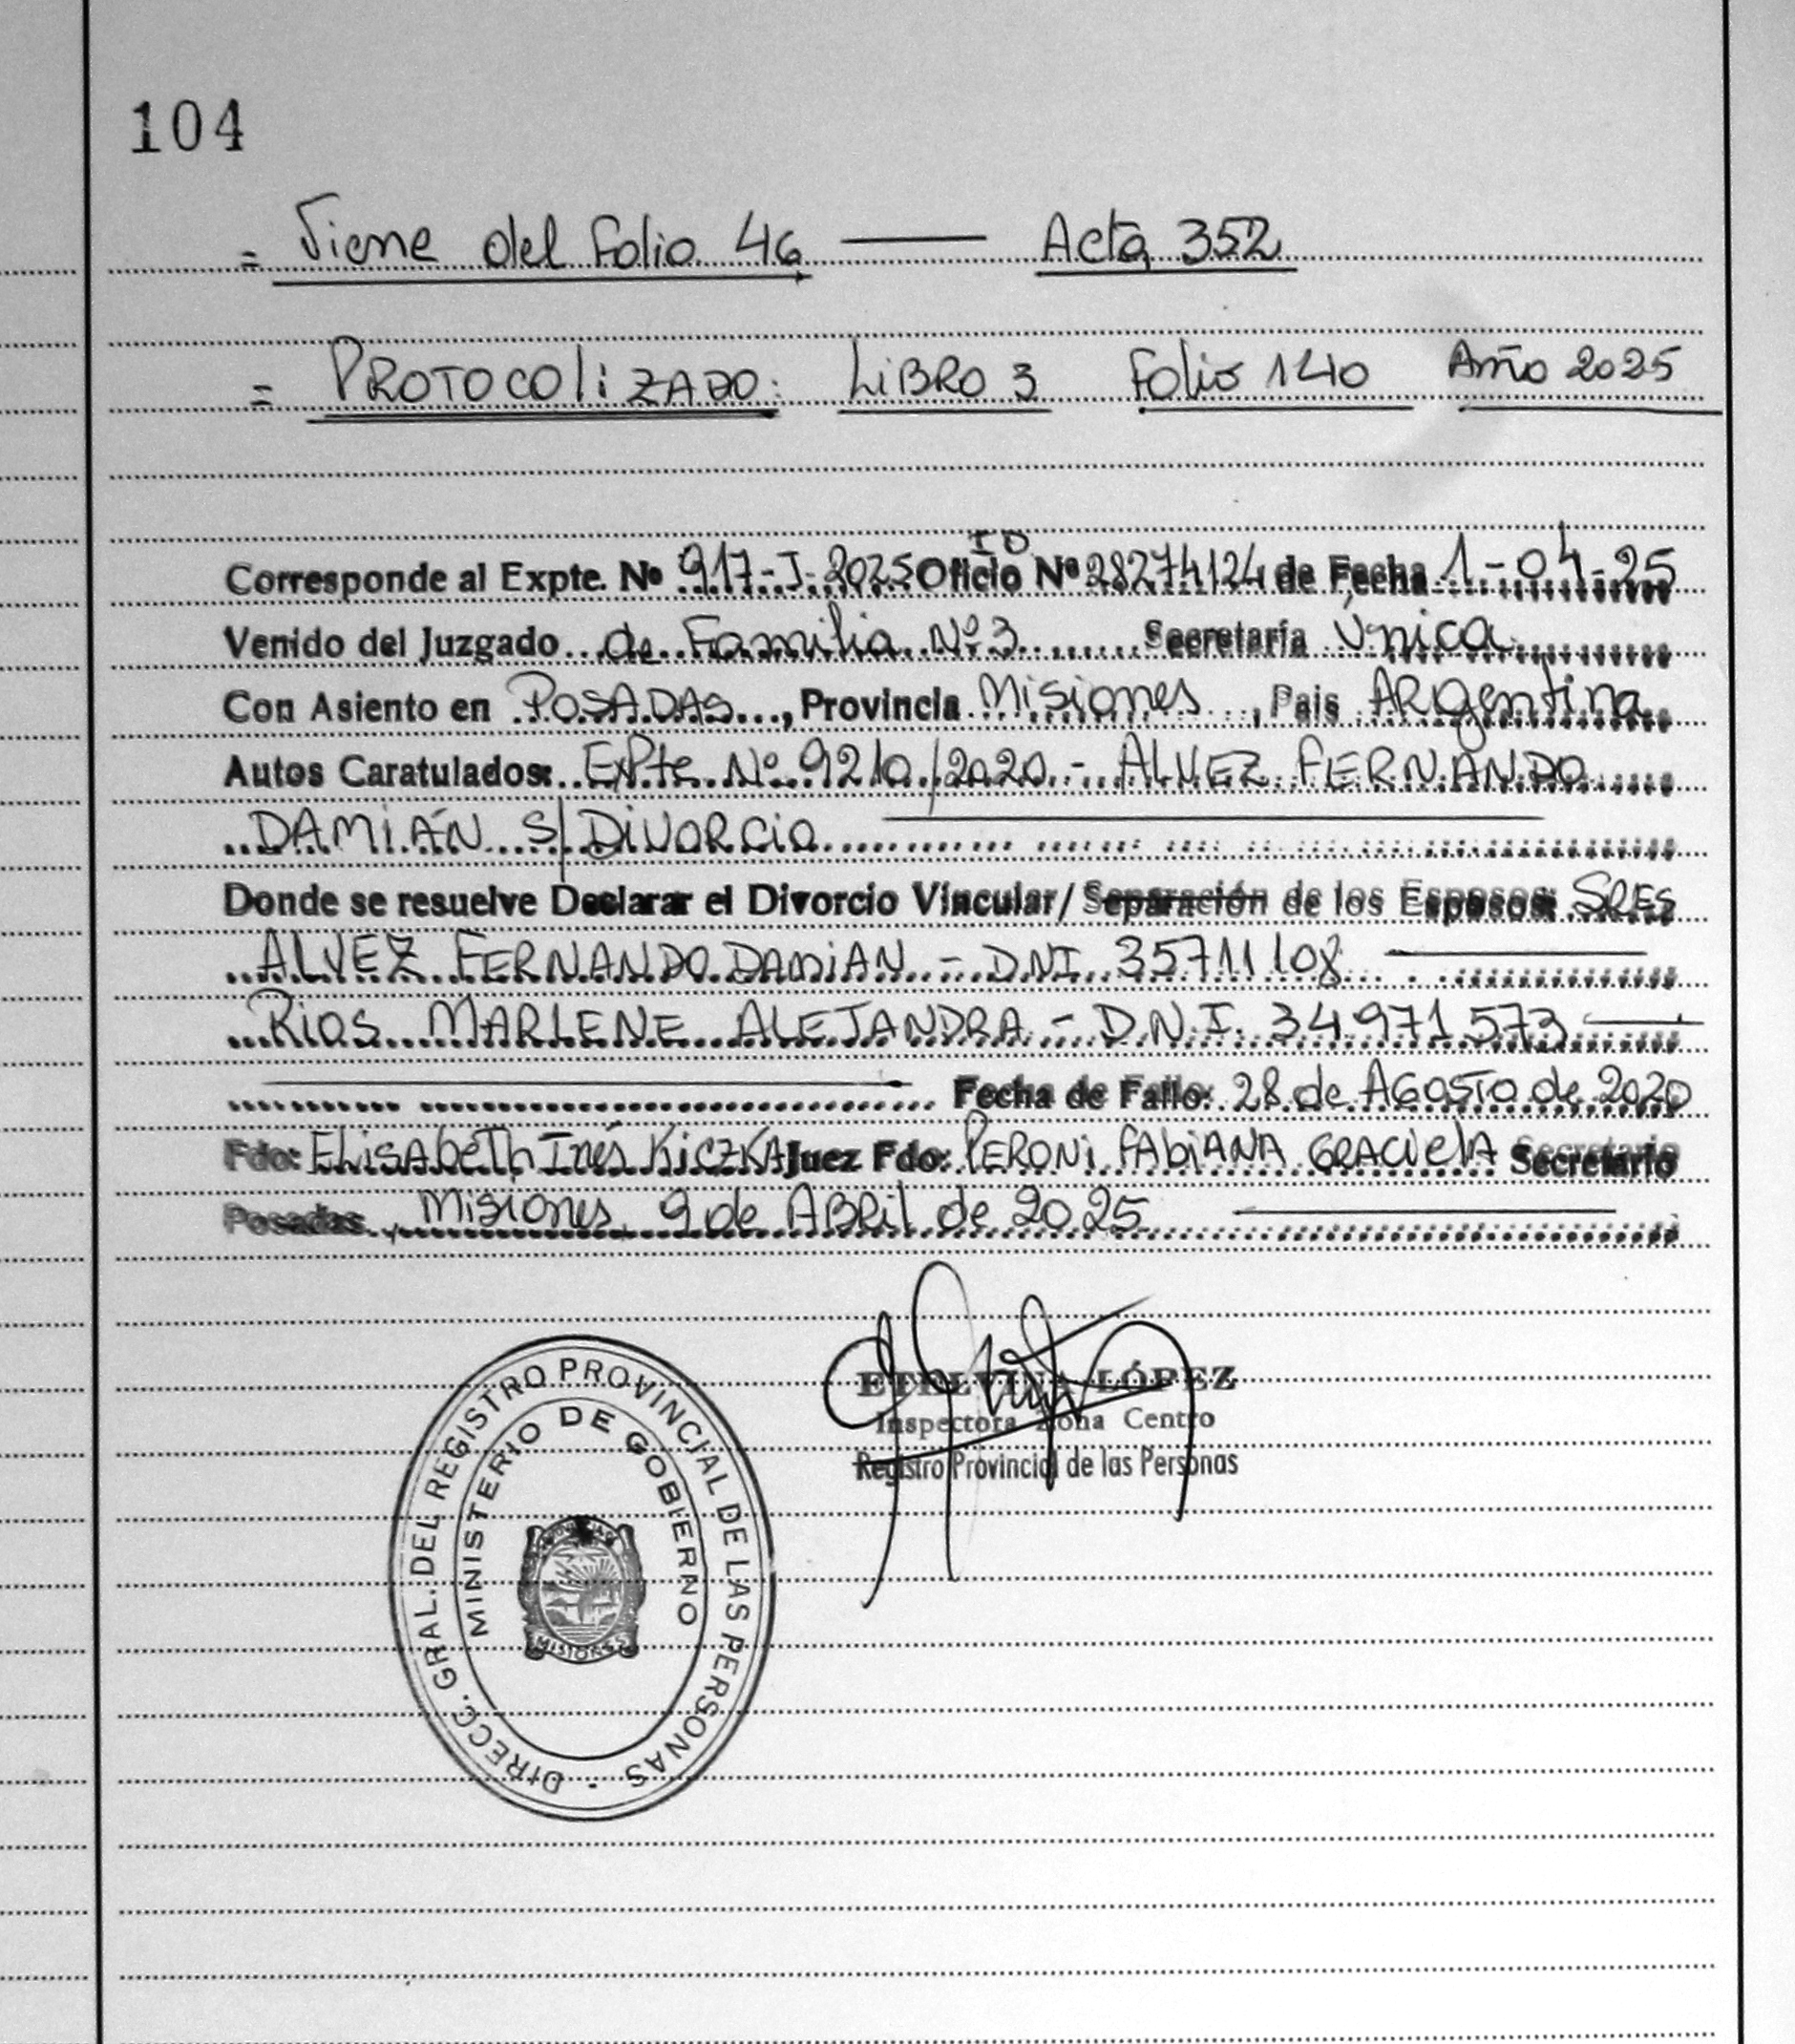 104
= Viene del Folio 46 —— Acta 352
= PROTOCOLIZADO: LiBRO 3 Folio 140 Año 2025
ID
Corresponde al Expte. Nº 917-J-2025 Oficio Nº 28274124 de Fecha 1-04-25
Venido del Juzgado de Familia Nº 3 Secretaría Única
Con Asiento en POSADAS, Provincia Misiones, Pais ARgentina
Autos Caratulados: ExPte Nº 9210/2020 - ALVEZ FERNANDO
DAMIÁN S/ DIVORCIO
Donde se resuelve Declarar el Divorcio Vincular/ Separación de los Esposos: SRES
ALVEZ FERNANDO DAMIAN - DNI 35711108
RIOS MARLENE ALEJANDRA - D.N.I. 34971573
Fecha de Fallo: 28 de AGOSTO de 2020
Fdo: ELISABETH Inés KICZKA Juez Fdo: PERONI FABIANA GRACIELA Secretario
Posadas, Misiones, 9 de ABRil de 2025
ETELVINA LÓPEZ
Inspectora Zona Centro
Registro Provincial de las Personas
DIRECC. GRAL. DEL REGISTRO PROVINCIAL DE LAS PERSONAS
MINISTERIO DE GOBIERNO
MISIONES